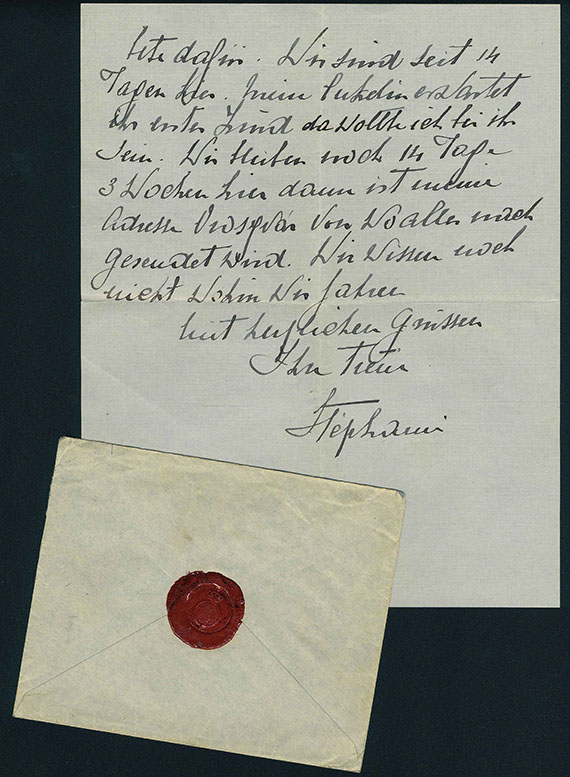 bitte dafür. Wir sind seit 14
Tagen hier. Meine Enkelin erwartet
ihr erstes Kind da wollte ich bei ihr
sein. Wir bleiben noch 14 Tage
3 Wochen hier dann ist meine
Adresse Oroszvár von wo alles nach
gesendet wird. Wir wissen noch
nicht wohin wir fahren
mit herzlichen Grüssen
Ihre treue
Stéphanie